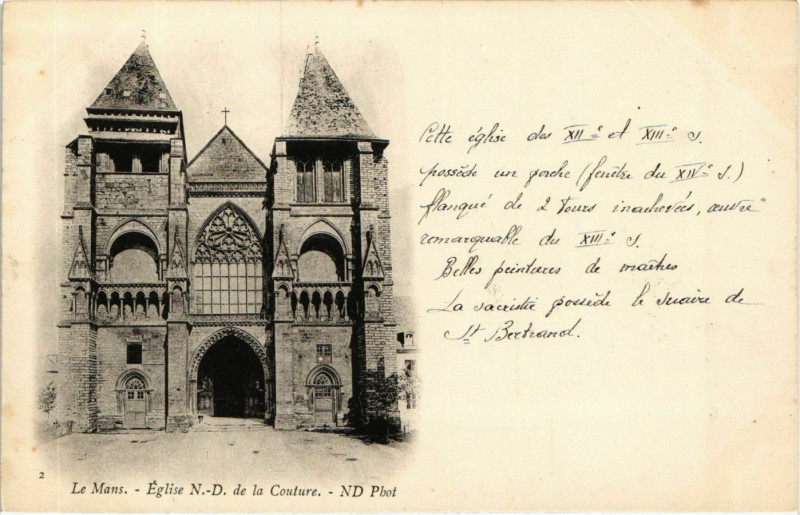 Cette église des XIIe et XIIIe S.
possède un porche (fenêtre du XIVe S.)
flanqué de 2 tours inachevées, œuvre
remarquable du XIIIe S.
Belles peintures de maîtres
La sacristie possède le suaire de
St Bertrand.
2
Le Mans. - Église N.-D. de la Couture. - ND Phot